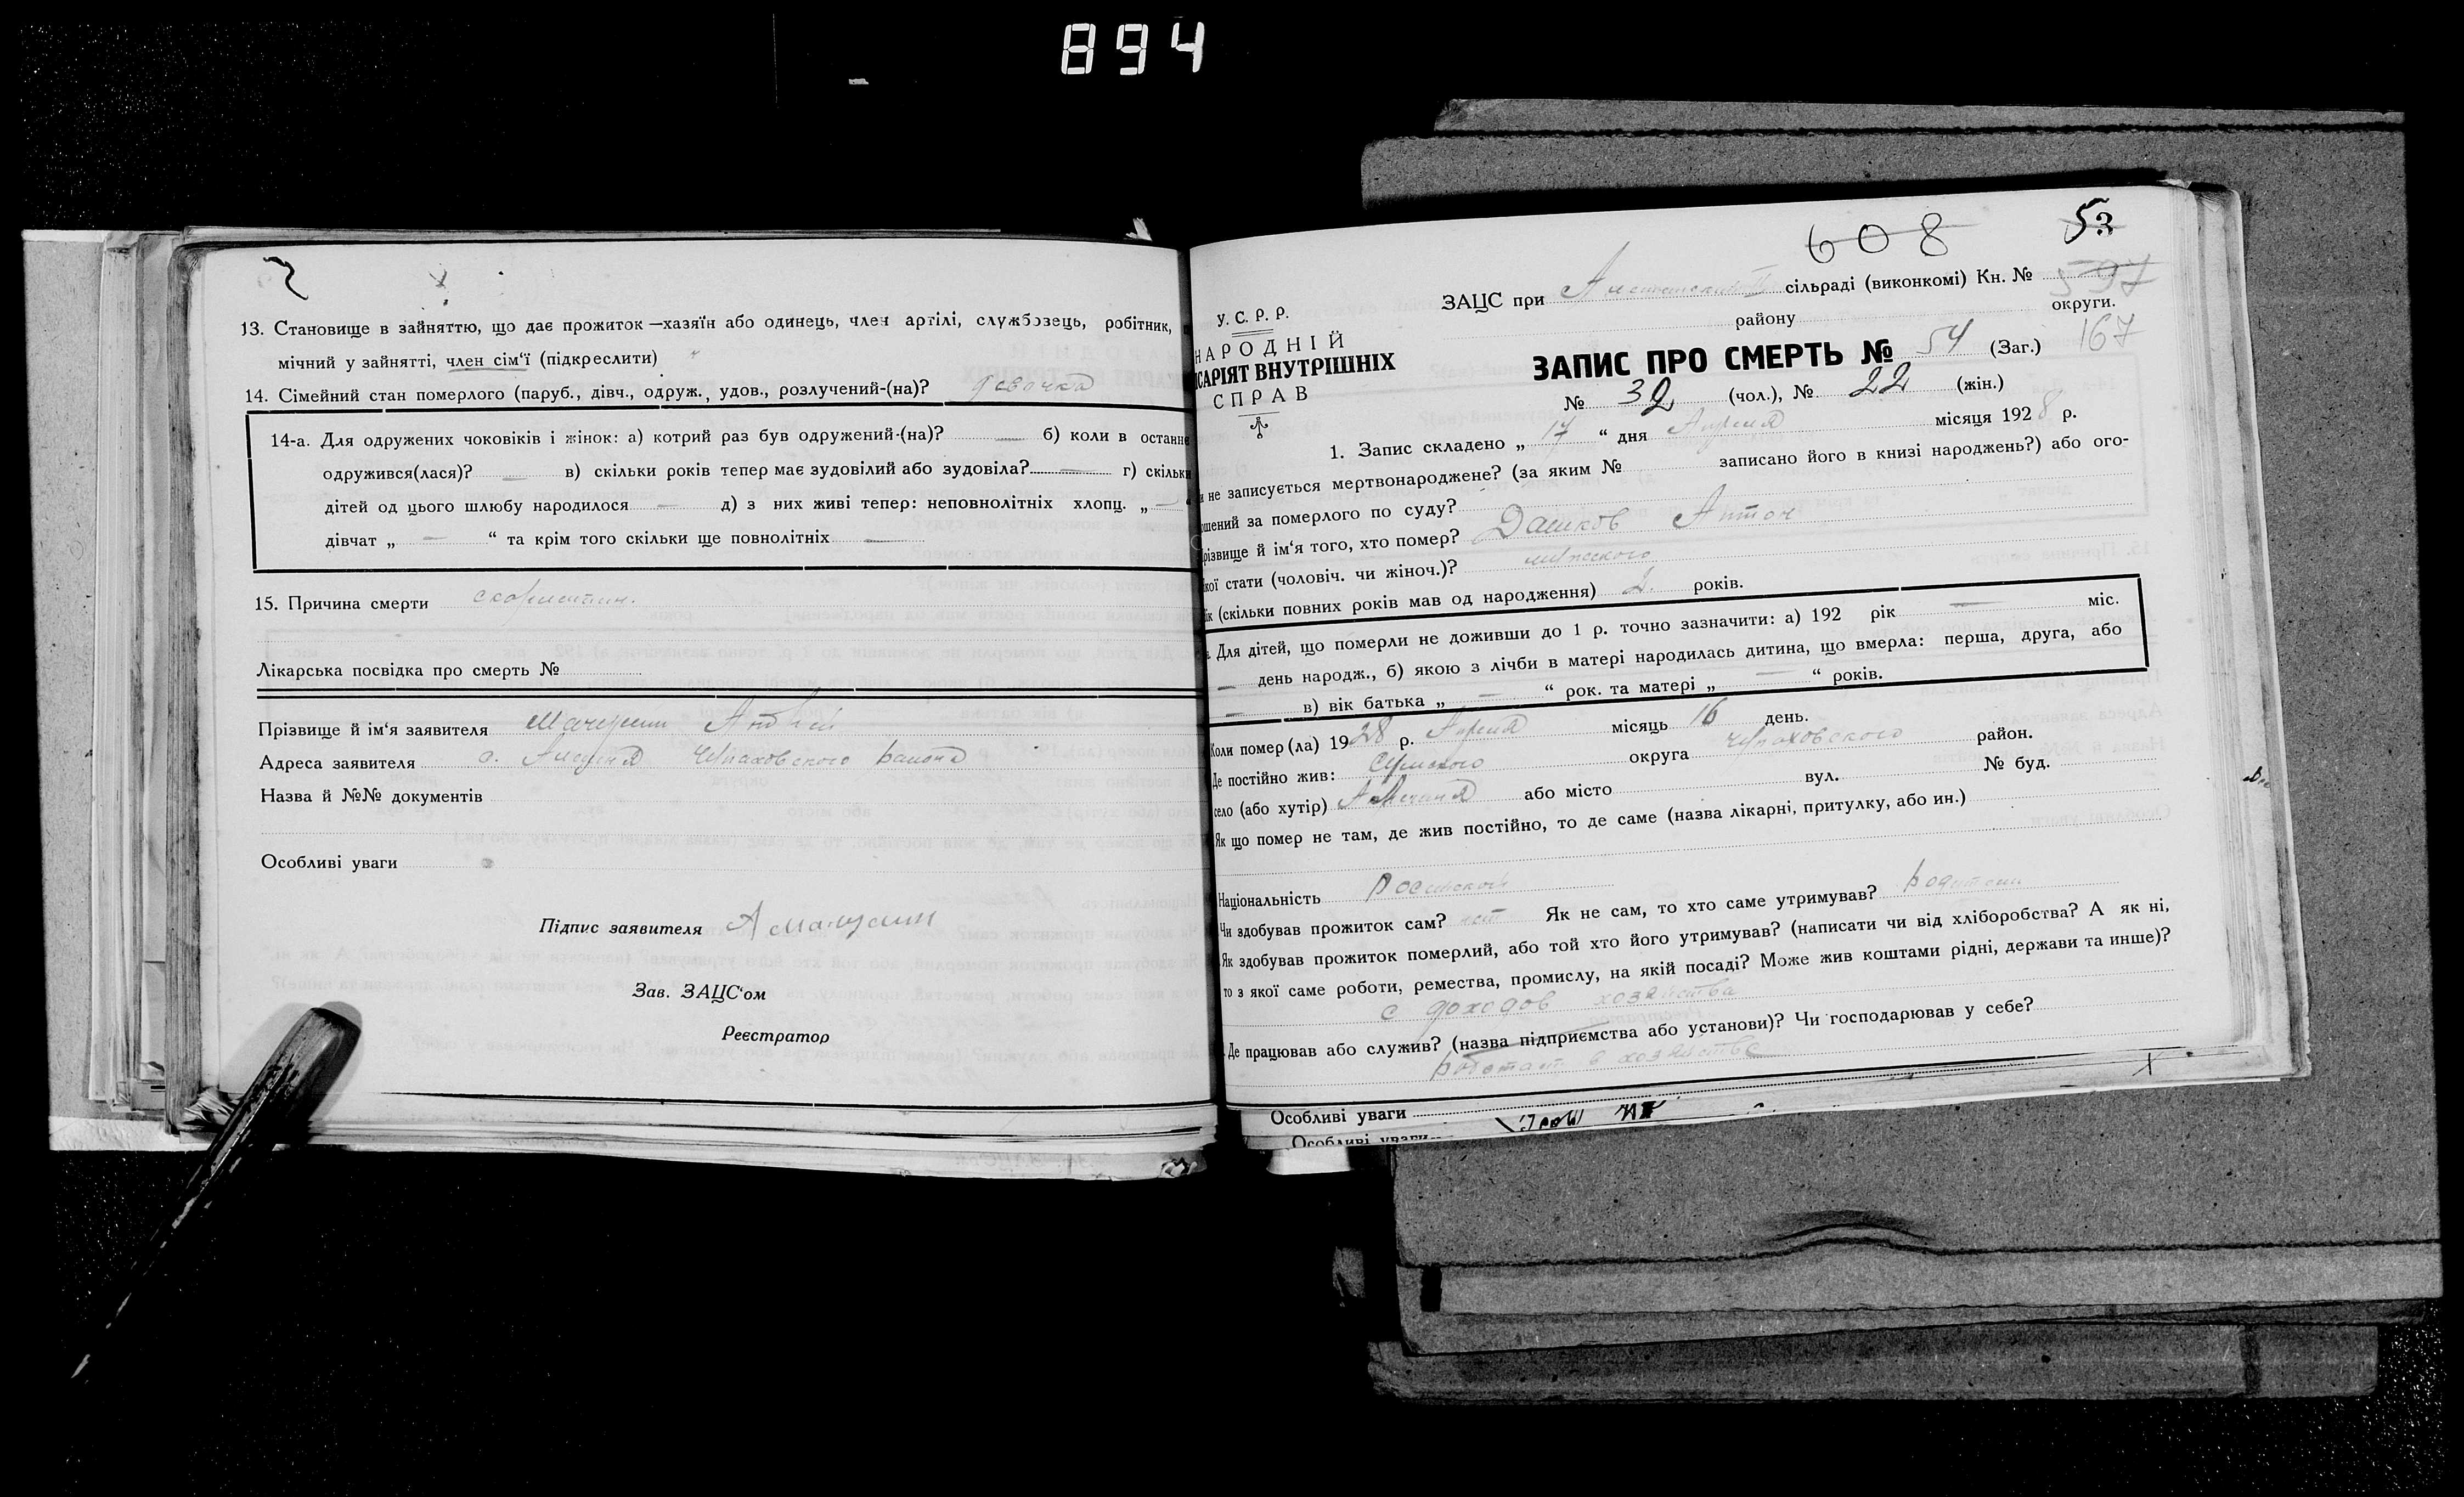 894
13. Становище в зайняттю, що дає прожиток—хазяїн або одинець, член артілі, службовець, робітник,
мічний у зайнятті, член сім‘ї (підкреслити)
14. Сімейний стан померлого (паруб., дівч., одруж., удов., розлучений-(на)? девочка
14-а. Для одружених чоковіків і жінок: а) котрий раз був одружений-(на)? — б) коли в останнє
одружився(лася)? — в) скільки років тепер має зудовілий або зудовіла? — г) скільки
дітей од цього шлюбу народилося — д) з них живі тепер: неповнолітніх хлопц. „ — “
дівчат „ — “ та крім того скільки ще повнолітніх —
15. Причина смерти
Лікарська посвідка про смерть №
Прізвище й ім‘я заявителя Андрей
Адреса заявителя с. района
Назва й №№ документів
Особливі уваги
Підпис заявителя А
Зав. ЗАЦС‘ом
Реєстратор
608 53
У. С. Р. Р.
НАРОДНІЙ
ІСАРІЯТ ВНУТРІШНІХ
СПРАВ
ЗАЦС при сільраді (виконкомі) Кн. № 597
району округи.
ЗАПИС ПРО СМЕРТЬ № 54 (Заг.) 167
№ 32 (чол.), № 22 (жін.)
1. Запис складено „ 17 “ дня Апреля місяця 1928 р.
и не записується мертвонароджене? (за яким № записано його в книзі народжень?) або ого-
шений за померлого по суду?
різвище й ім‘я того, хто помер? Дашков Антон
кої стати (чоловіч. чи жіноч.)? мужского
ік (скільки повних років мав од народження) 2. років.
Для дітей, що померли не доживши до 1 р. точно зазначити: а) 192 рік — міс.
— день народж., б) якою з лічби в матері народилась дитина, що вмерла: перша, друга, або
— в) вік батька „ — “ рок. та матері „ — “ років.
Коли помер (ла) 1928 р. Апреля місяць 16 день.
Де постійно жив: Сумского округа район.
село (або хутір) або місто вул. № буд.
Як що помер не там, де жив постійно, то де саме (назва лікарні, притулку, або ин.)
Національність
Чи здобував прожиток сам? нет Як не сам, то хто саме утримував? родители
Як здобував прожиток померлий, або той хто його утримував? (написати чи від хліборобства? А як ні,
то з якої саме роботи, ремества, промислу, на якій посаді? Може жив коштами рідні, держави та инше)?
с доходов хозяйства
Де працював або служив? (назва підприємства або установи)? Чи господарював у себе?
работает в хозяйстве
Особливі уваги
Особливі уваги